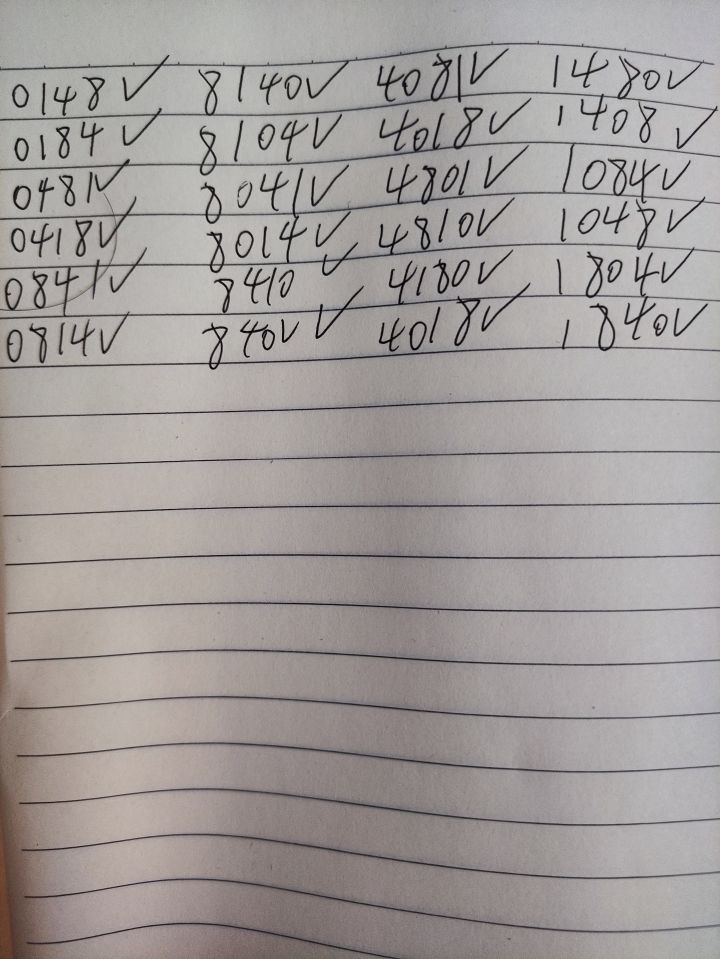 0148✓ 8140✓ 4081✓ 1480✓
0184✓ 8104✓ 4018✓ 1408✓
0481✓ 8041✓ 4801✓ 1084✓
0418✓ 8014✓ 4810✓ 1048✓
0841✓ 8410✓ 4180✓ 1804✓
0814✓ 840✓✓ 4018✓ 1840✓